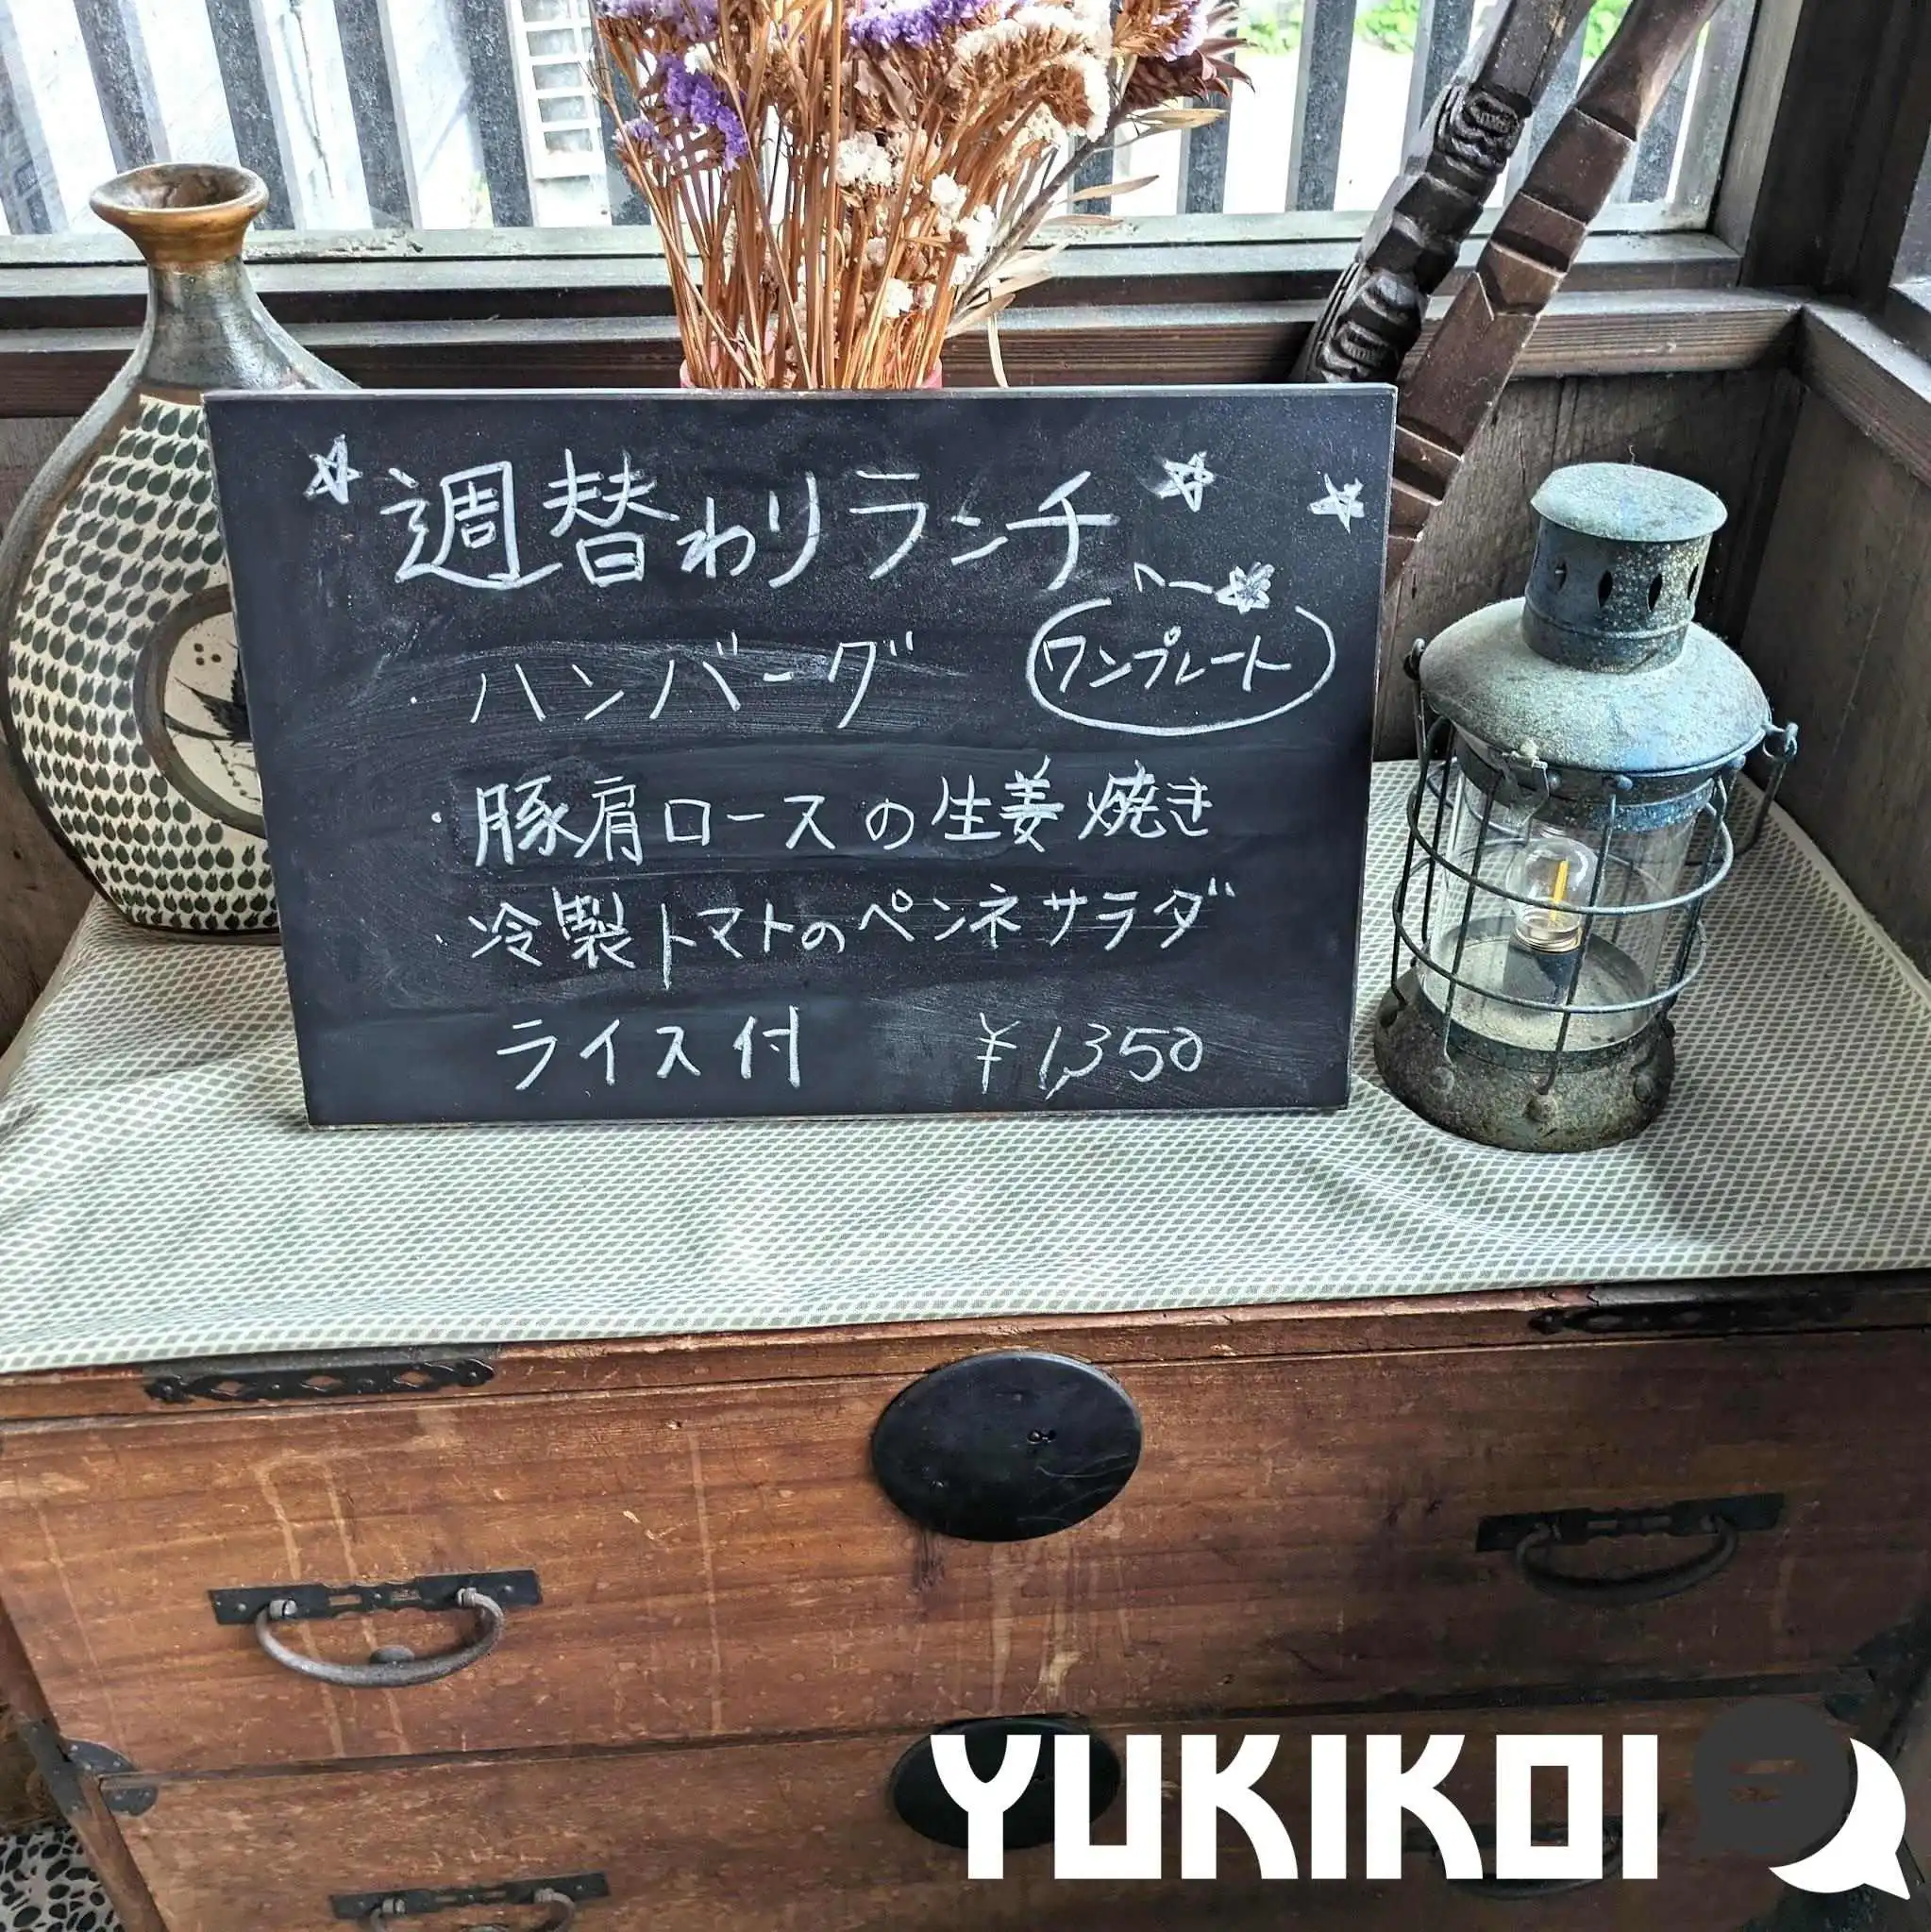 週替わりランチ
・ハンバーグ
ワンプレート
・豚肩ロースの生姜焼き
・冷製トマトのペンネサラダ
ライス付 ¥1,350
YUKIKOI